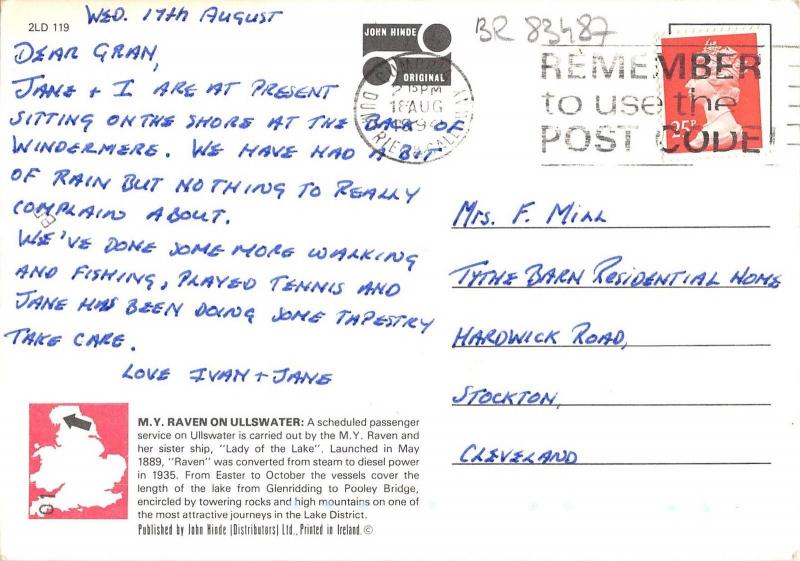 2LD 119
WED. 17th AUGUST
DEAR GRAN,
JANE + I ARE AT PRESENT
SITTING ON THE SHORE AT THE BACK OF
WINDERMERE. WE HAVE HAD A BIT
OF RAIN BUT NOTHING TO REALLY
COMPLAIN ABOUT.
WE'VE DONE SOME MORE WALKING
AND FISHING, PLAYED TENNIS AND
JANE HAS BEEN DOING SOME TAPESTRY
TAKE CARE.
LOVE IVAN + JANE
JOHN HINDE
ORIGINAL
BR 83487
2 15PM
18 AUG
1994
REMEMBER
to use the
POST CODE!
25P
MRS. F. MILL
TYTHE BARN RESIDENTIAL HOME
HARDWICK ROAD,
STOCKTON,
CLEVELAND
M.Y. RAVEN ON ULLSWATER: A scheduled passenger
service on Ullswater is carried out by the M.Y. Raven and
her sister ship, "Lady of the Lake". Launched in May
1889, "Raven" was converted from steam to diesel power
in 1935. From Easter to October the vessels cover the
length of the lake from Glenridding to Pooley Bridge,
encircled by towering rocks and high mountains on one of
the most attractive journeys in the Lake District.
Published by John Hinde (Distributors) Ltd., Printed in Ireland. ©
01